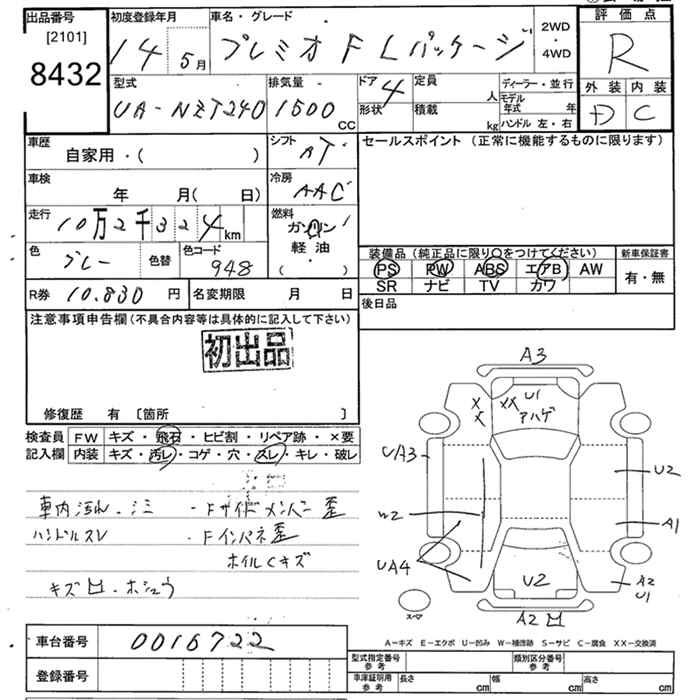 出品番号
[2101]
8432
初度登録年月
14年 5月
車名・グレード
プレミオ F Lパッケージ
2WD
・
4WD
評価点
R
外装 内装
D C
型式
UA-NZT240
排気量
1500 CC
ドア 4
形状
定員 人
積載 kg
ディーラー・並行
モデル年式 年
ハンドル 左・右
車歴
自家用・( )
シフト
AT
セールスポイント (正常に機能するものに限ります)
車検
年 月(日)
冷房
AAC
走行
10万2千324km
燃料
ガソリン
軽油
( ・ )
色
グレー
色替
色コード
948
装備品(純正品に限り○をつけてください)
新車保証書
PS PW ABS エアB AW
SR ナビ TV カワ
有・無
R券 10.830 円
名変期限 月 日
後日品
注意事項申告欄(不具合内容等は具体的に記入して下さい)
初出品
修復歴 有 [箇所 ]
検査員
記入欄
FW キズ・飛石・ヒビ割・リペア跡・×要
内装 キズ・汚レ・コゲ・穴・スレ・キレ・破レ
車内汚れ・シミ ・Fサイドメンバー歪
ハンドルスレ ・Fインパネ歪
ホイルCキズ
キズ凹・ホシュウ
A3
U1
X
X
XX
アハゲ
UA3
U2
W2
A1
UA4
U2
A2
U1
スペア
A2凹
車台番号 0016722
登録番号
A-キズ E-エクボ U-凹み W-補修跡 S-サビ C-腐食 XX-交換済
型式指定番号
参考
類別区分番号
参考
車庫証明用
参考
長さ cm 幅 cm 高さ cm